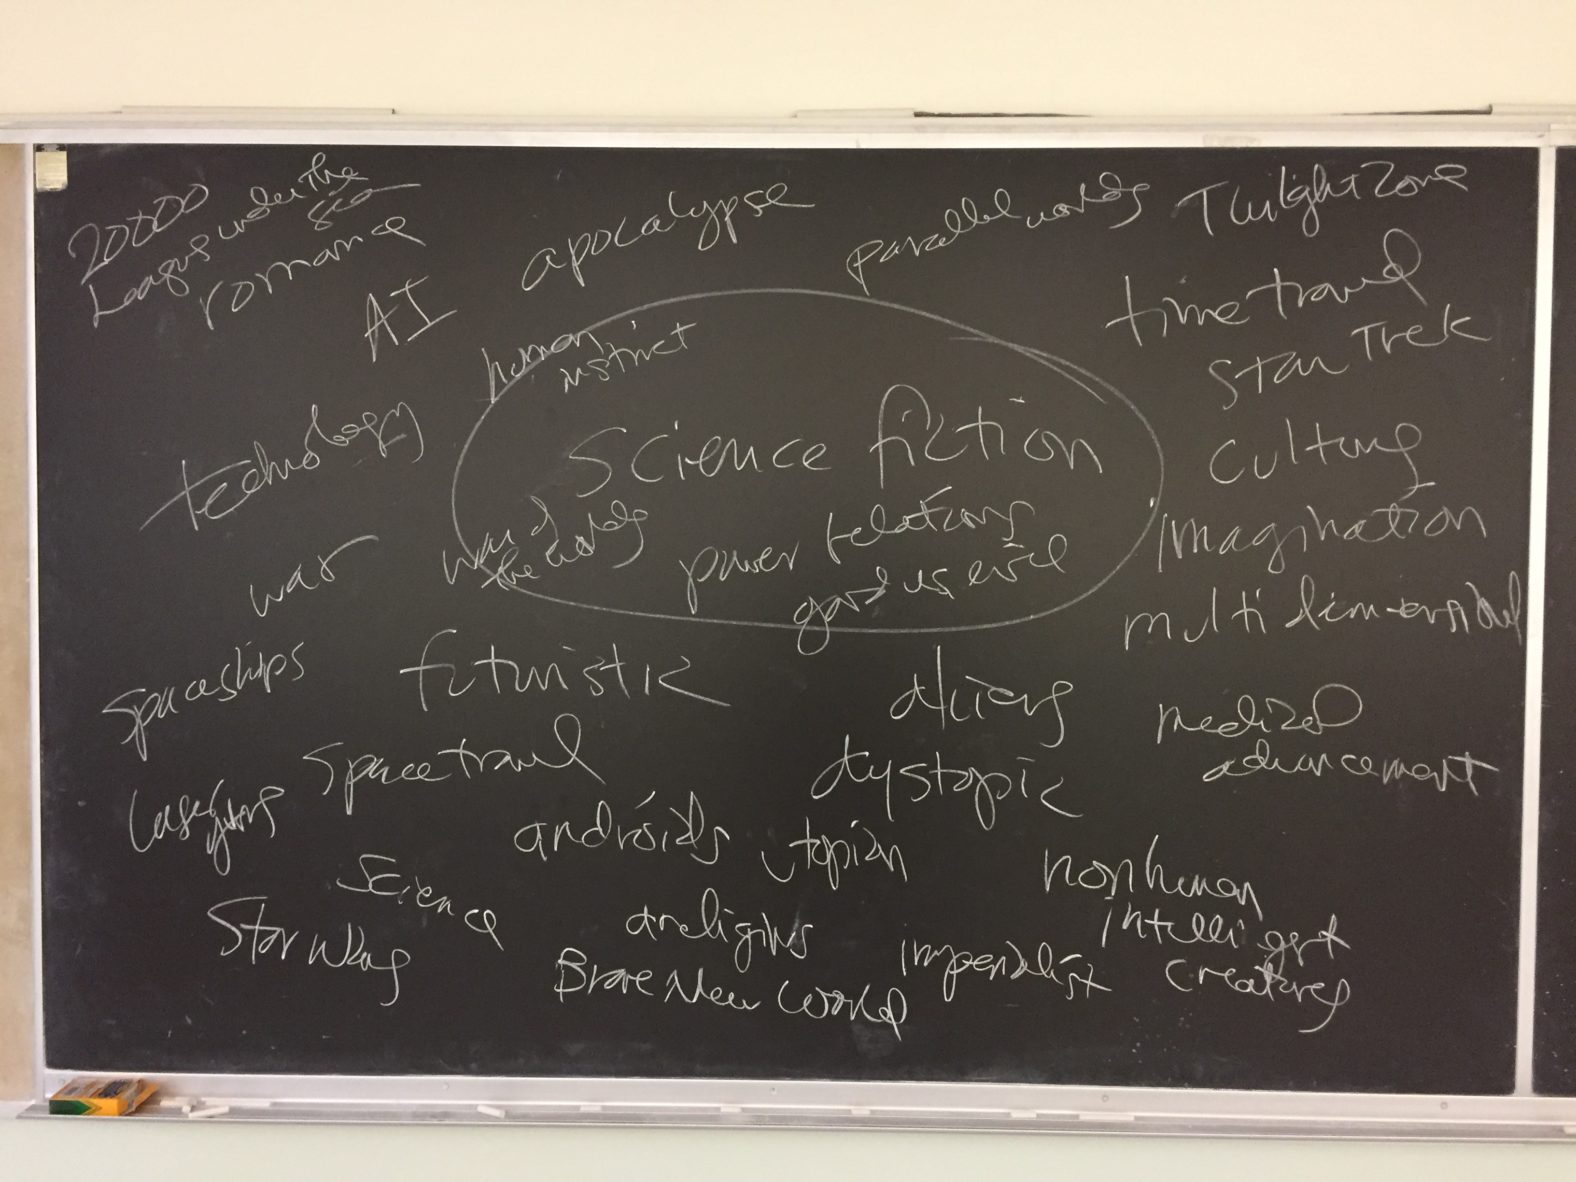 20000
Leagues under the
sea
romance
AI
apocalypse
parallel worlds
Twilight Zone
time travel
Star Trek
human
instinct
technology
Science fiction
culture
imagination
war
war of
the worlds
power relations
good vs evil
multi dimensional
spaceships
futuristic
aliens
medical
advancement
space travel
dystopic
laser
guns
androids
utopian
science
nonhuman
intelligent
creatures
Star Wars
areligious
imperialist
Brave New World